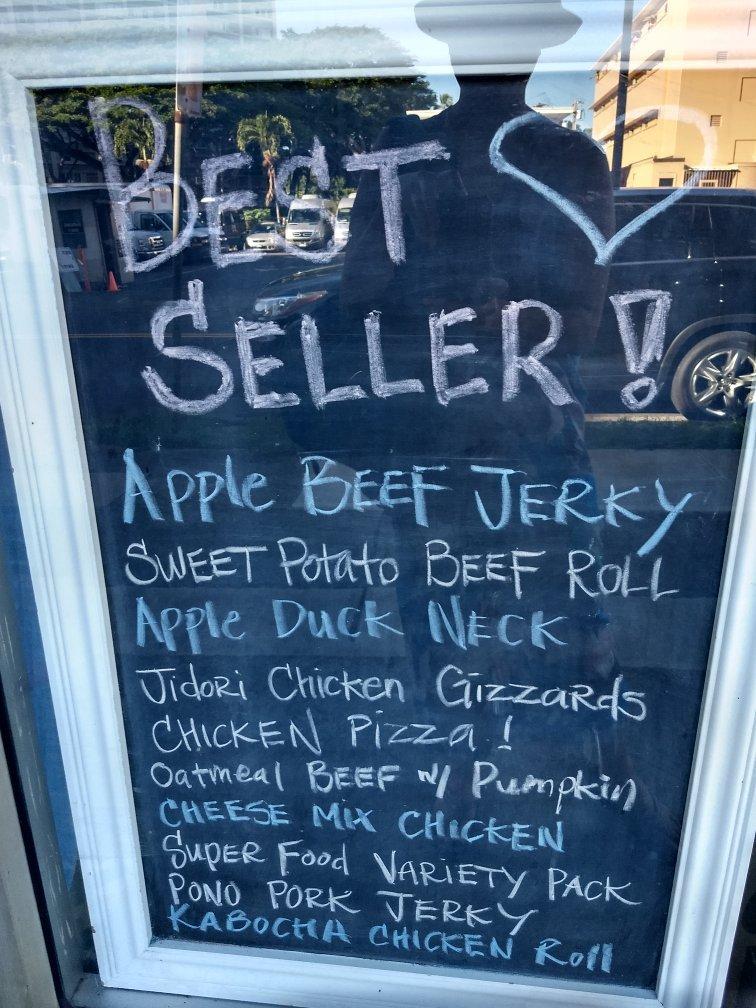 BEST
SELLER!
Apple BEEF JERKY
SWEET Potato BEEF ROLL
Apple DUCK NECK
Jidori Chicken Gizzards
CHICKEN Pizza!
Oatmeal BEEF w/ Pumpkin
CHEESE MIX CHICKEN
SUPER Food VARIETY PACK
PONO PORK JERKY
KABOCHA CHICKEN Roll